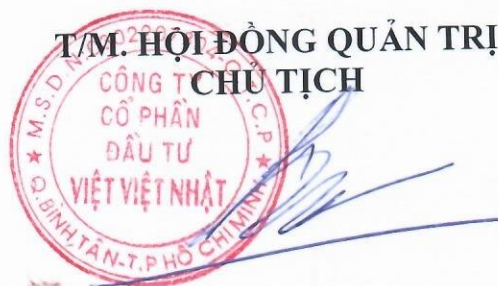 T/M. HỘI ĐỒNG QUẢN TRỊ
CHỦ TỊCH
CÔNG TY
CỔ PHẦN
ĐẦU TƯ
VIỆT VIỆT NHẬT
Q.BÌNH TÂN-T.P HỒ CHÍ MINH